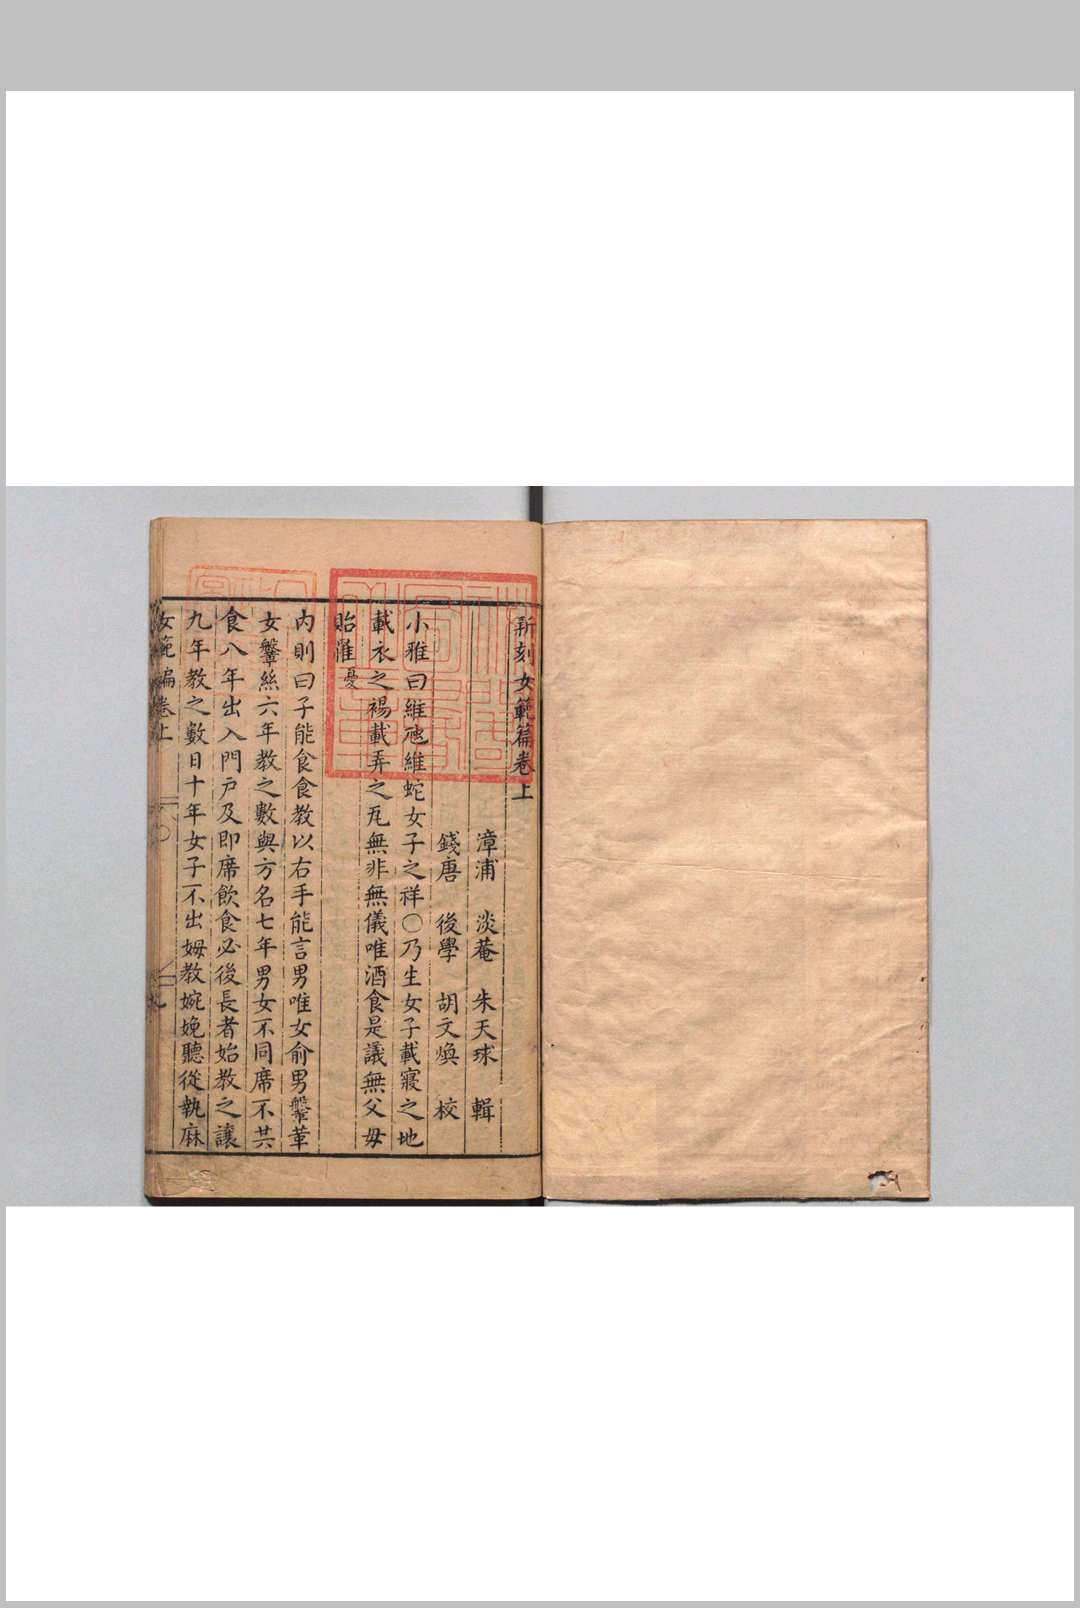 新刻女範篇卷上
漳浦　淡菴　朱天球　輯
錢唐　後學　胡文煥　校
小雅曰維虺維蛇女子之祥○乃生女子載寢之地
載衣之裼載弄之瓦無非無儀唯酒食是議無父母
貽罹憂
內則曰子能食食教以右手能言男唯女俞男鞶革
女鞶絲六年教之數與方名七年男女不同席不共
食八年出入門戶及即席飲食必後長者始教之讓
九年教之數日十年女子不出姆教婉娩聽從執麻
女範編卷上